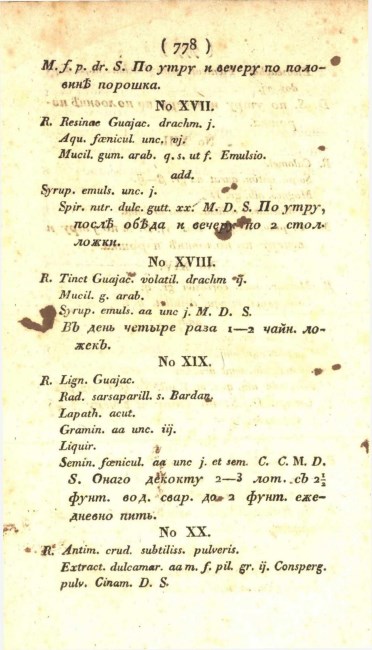 ( 778 )
M. f. p. dr. S. По утру и вечеру по поло-
винѣ порошка.
No XVII.
R. Resinae Guajac. drachm. j.
Aqu. fœnicul. unc. vj.
Mucil. gum. arab. q. s. ut f. Emulsio.
add.
Syrup. emuls. unc. j.
Spir. nitr. dulc. gutt. xx. M. D. S. По утру,
послѣ обѣда и вечеру по 2 стол-
ложки.
No XVIII.
R. Tinct Guajac. volatil. drachm ij.
Mucil. g. arab.
Syrup. emuls. aa unc j. M. D. S.
Въ день четыре раза 1—2 чайн. ло-
жекъ.
No XIX.
R. Lign. Guajac.
Rad. sarsaparill. s. Bardan.
Lapath. acut.
Gramin. aa unc. iij.
Liquir.
Semin. fœnicul. aa unc j. et sem. C. C. M. D.
S. Онаго декокту 2—3 лот. съ 2½
фунт. вод. свар. до 2 фунт. еже-
дневно пить.
No XX.
R. Antim. crud. subtiliss. pulveris.
Extract. dulcamar. aa m. f. pil. gr. ij. Consperg.
pulv. Cinam. D. S.